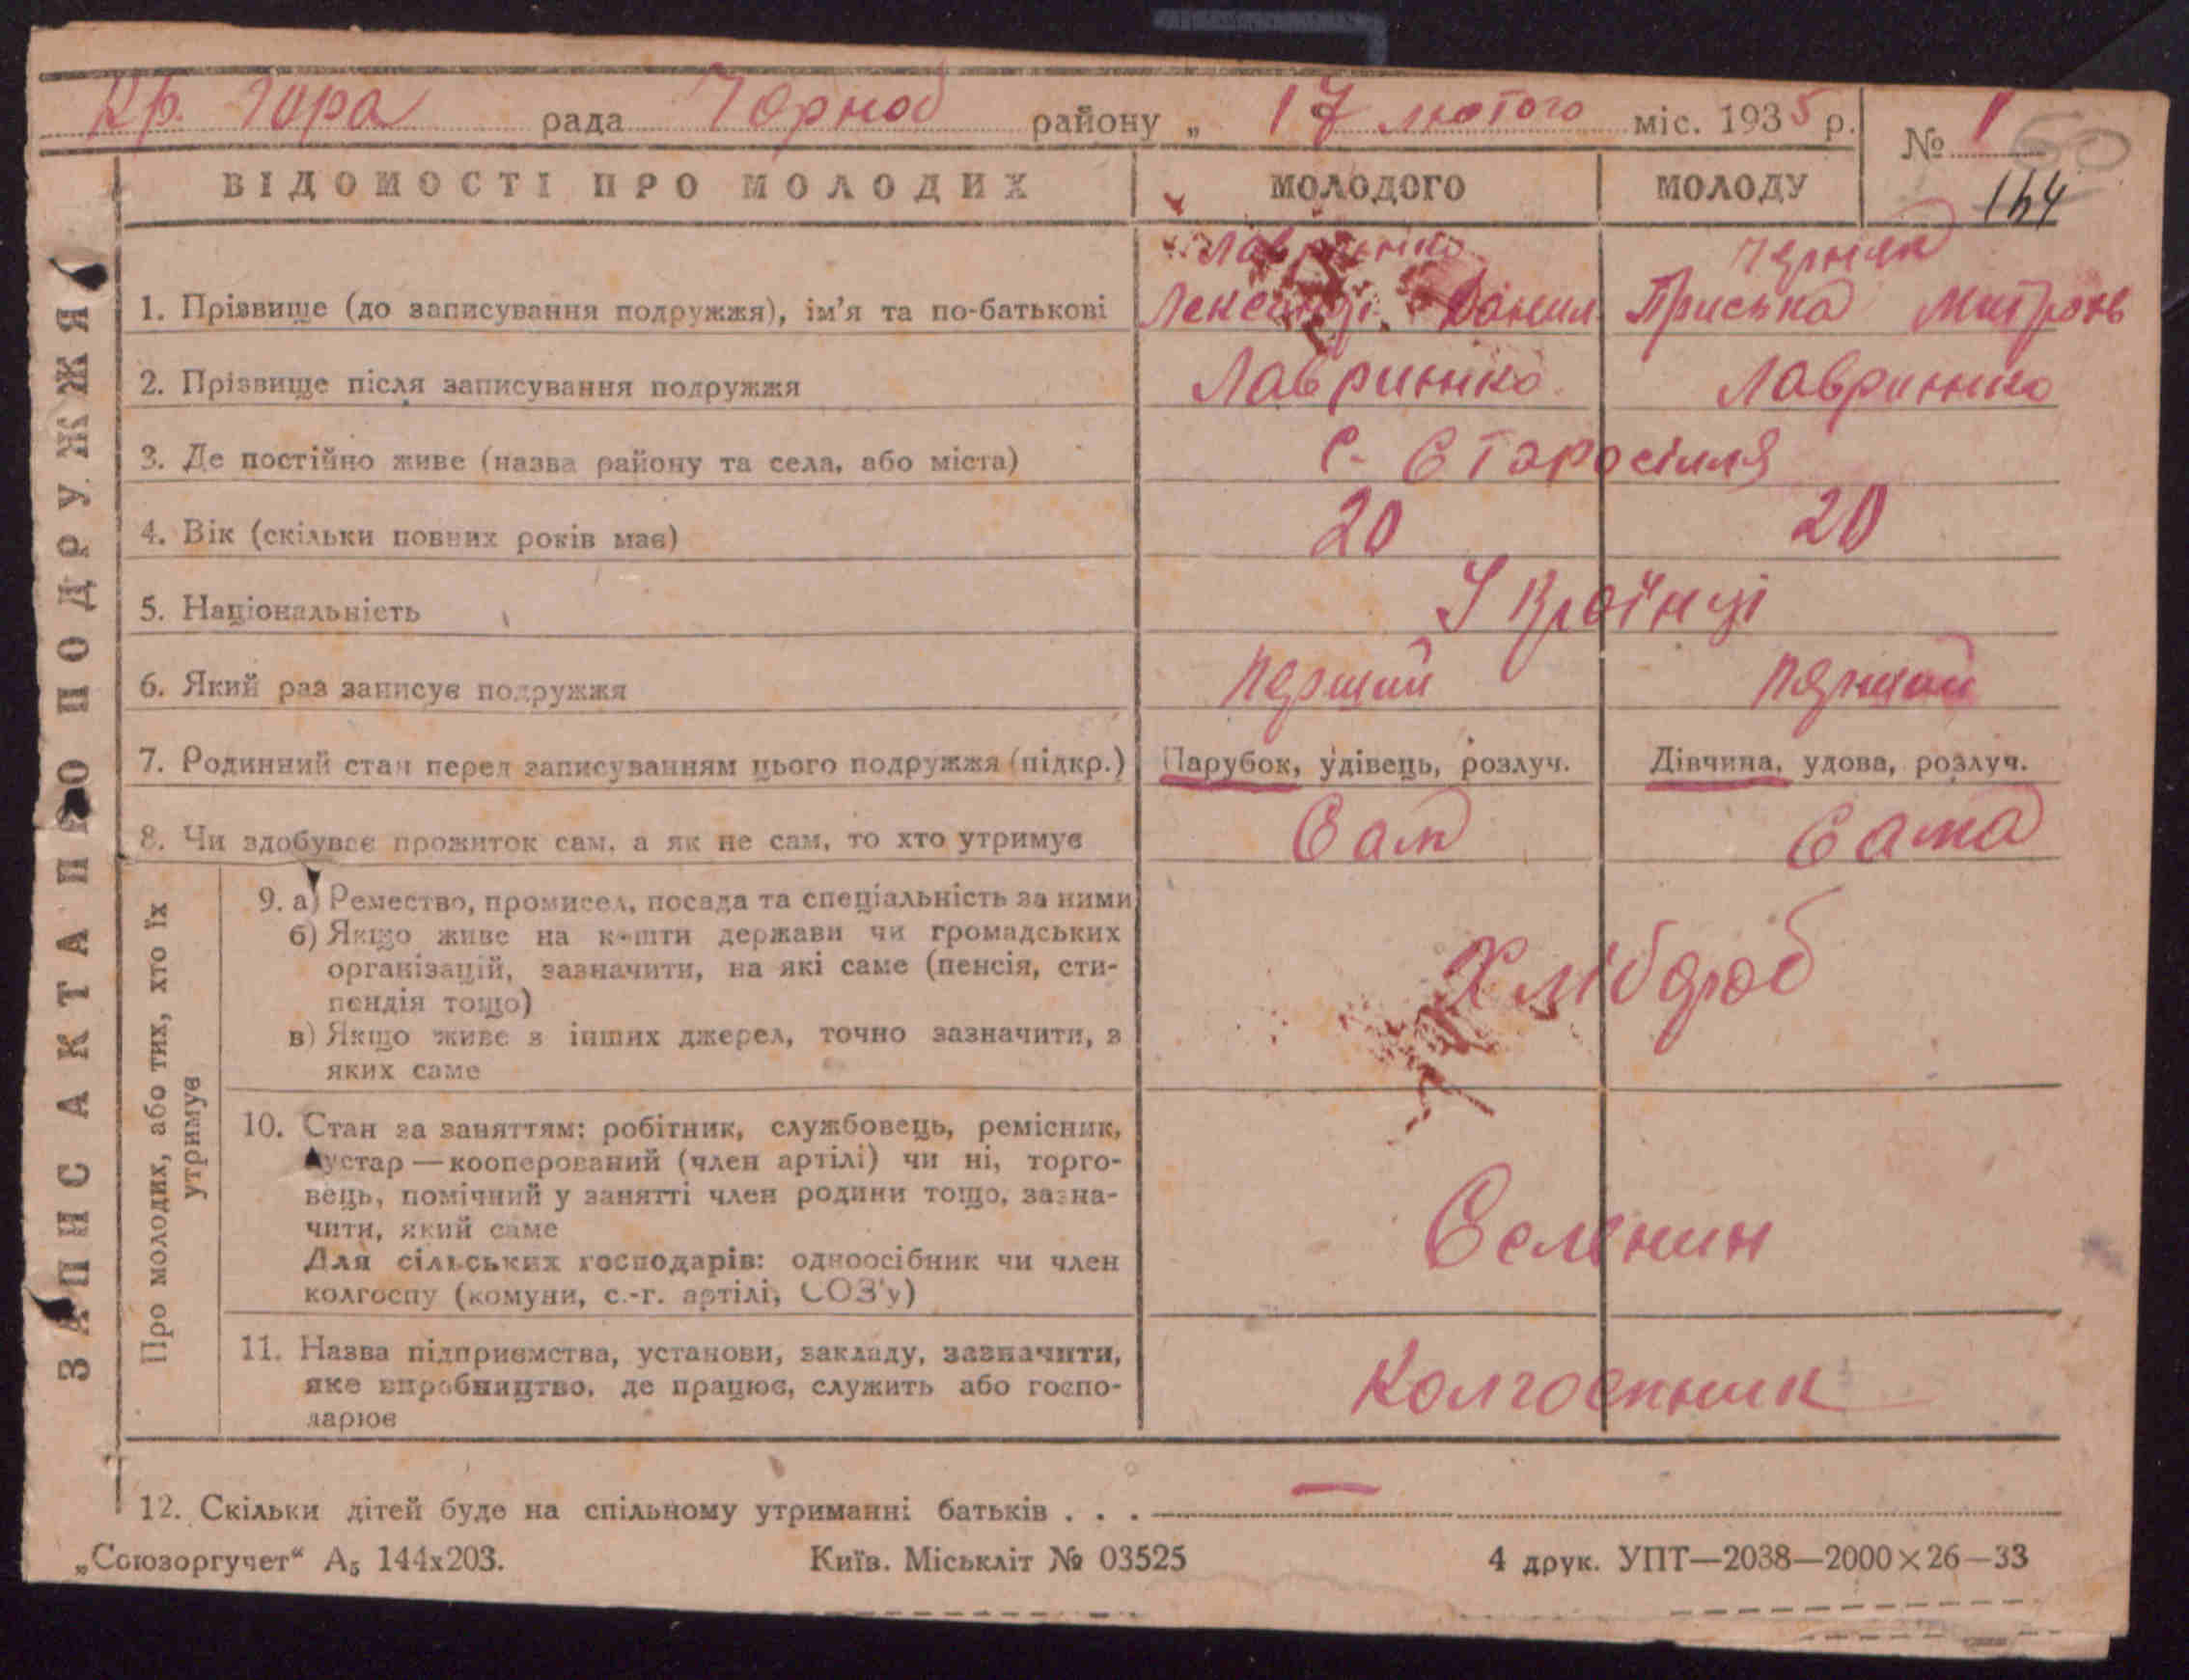 Кр. Гора рада Чорноб району „ 17 лютого міс. 1935 р. № 1
60
164
ВІДОМОСТІ ПРО МОЛОДИХ МОЛОДОГО МОЛОДУ
ЗАПИС АКТА ПРО ПОДРУЖЖЯ
Лавриннко Черняк
1. Прізвище (до записування подружжя), ім'я та по-батькові Лександр Данил Приська Митров
2. Прізвище після записування подружжя Лавриннко Лавриннко
3. Де постійно живе (назва району та села, або міста) с. Старосілля
4. Вік (скільки повних років має) 20 20
5. Національність Українці
6. Який раз записує подружжя перший перший
7. Родинний стан перед записуванням цього подружжя (підкр.) Парубок, удівець, розлуч. Дівчина, удова, розлуч.
8. Чи здобуває прожиток сам, а як не сам, то хто утримує Сам Сама
Про молодих, або тих, хто їх
утримує
9. а) Ремество, промисел, посада та спеціальність за ними
б) Якщо живе на кошти держави чи громадських
організацій, зазначити, на які саме (пенсія, сти-
пендія тощо)
в) Якщо живе з інших джерел, точно зазначити, з
яких саме
Хлібороб
10. Стан за заняттям: робітник, службовець, ремісник,
кустар — кооперований (член артілі) чи ні, торго-
вець, помічний у занятті член родини тощо, зазна-
чити, який саме
Для сільських господарів: одноосібник чи член
колгоспу (комуни, с.-г. артілі, СОЗ'у)
Селенин
11. Назва підприємства, установи, закладу, зазначити,
яке виробництво, де працює, служить або госпо-
дарює
Колгоспник
12. Скільки дітей буде на спільному утриманні батьків . . . —
„Союзоргучет“ А₅ 144х203. Київ. Міськліт № 03525 4 друк. УПТ—2038—2000×26—33